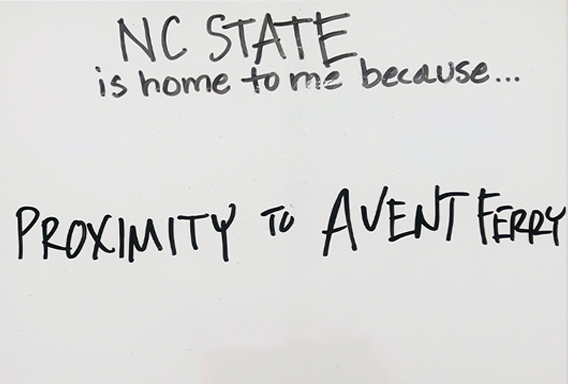 NC STATE
is home to me because...
PROXIMITY TO AVENT FERRY